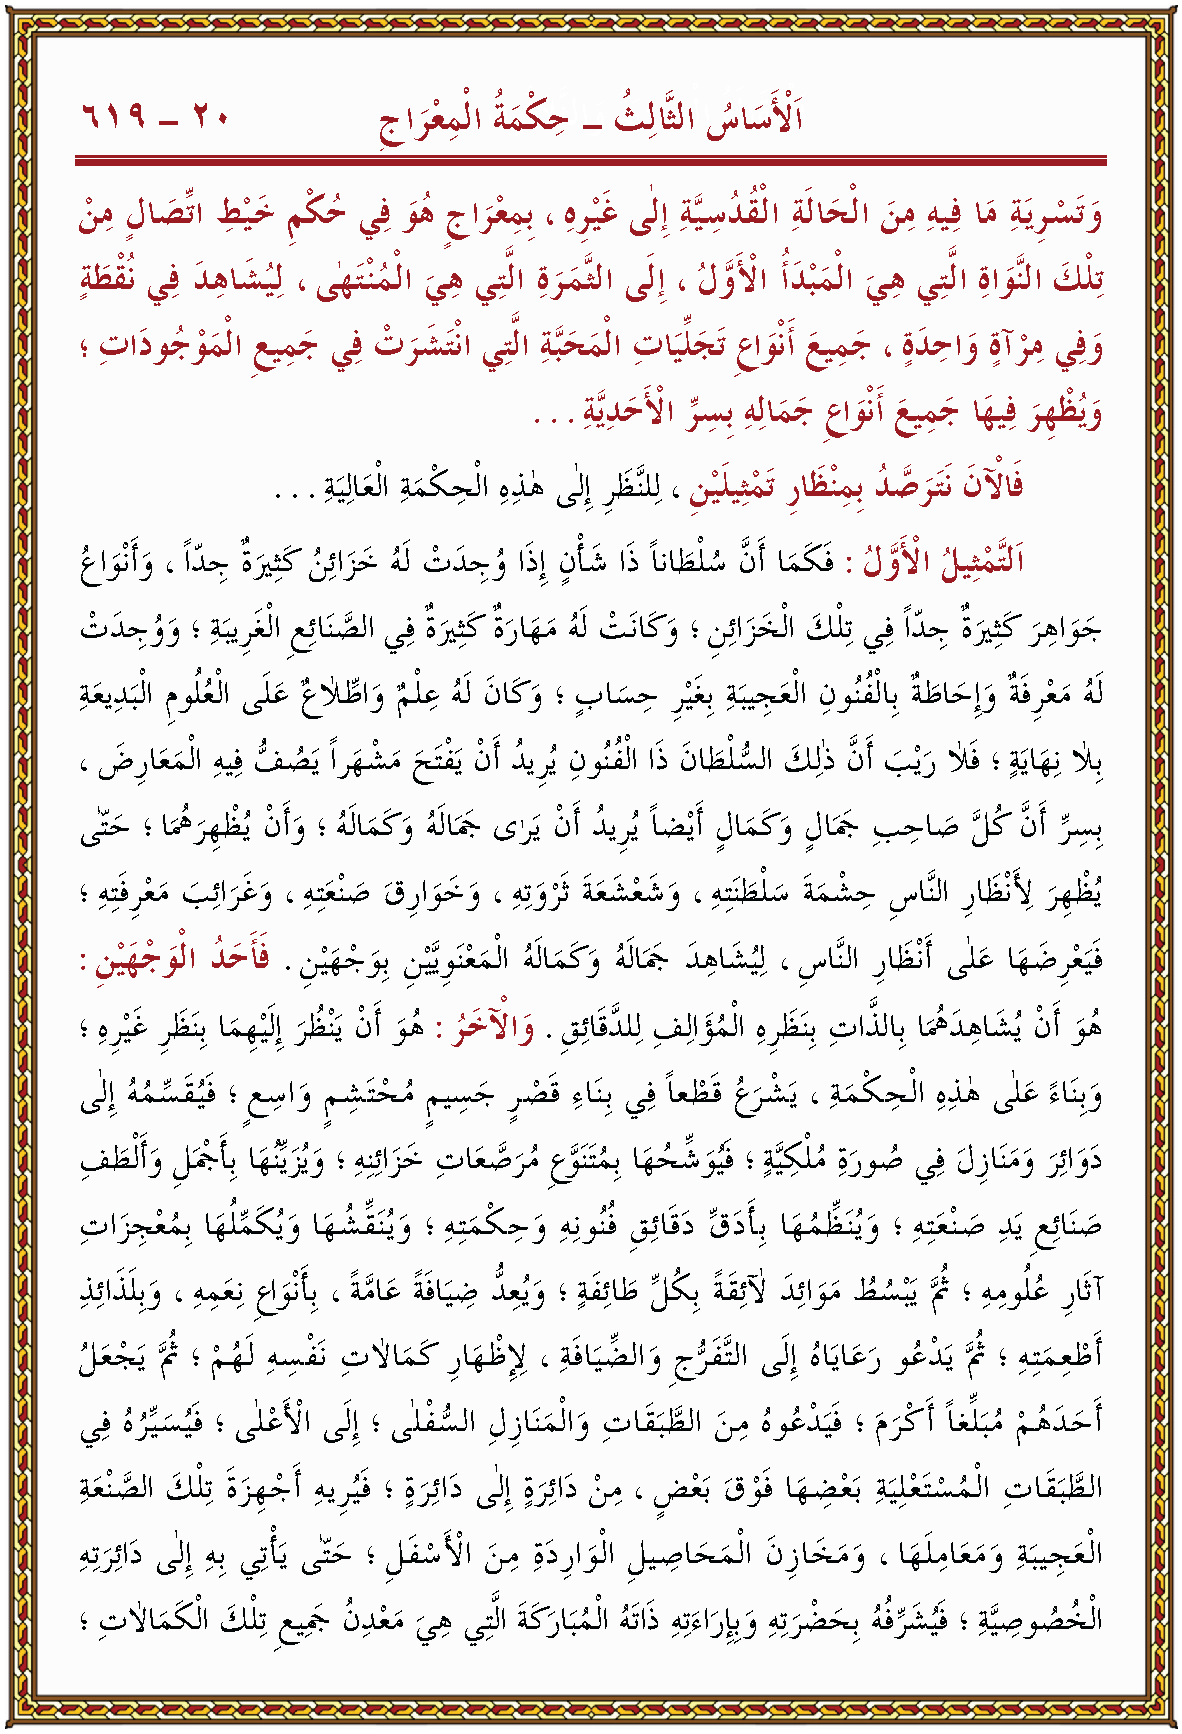 اَلْأَسَاسُ الثَّالِثُ ــ حِكْمَةُ الْمِعْرَاجِ ٢٠ ــ ٦١٩
وَتَسْرِيَةَ مَا فِيهِ مِنَ الْحَالَةِ الْقُدُسِيَّةِ إِلٰى غَيْرِهِ ، بِمِعْرَاجٍ هُوَ فِي حُكْمِ خَيْطِ اتِّصَالٍ مِنْ
تِلْكَ النَّوَاةِ الَّتِي هِيَ الْمَبْدَأُ الْأَوَّلُ ، إِلَى الثَّمَرَةِ الَّتِي هِيَ الْمُنْتَهٰى ، لِيُشَاهِدَ فِي نُقْطَةٍ
وَفِي مِرْآةٍ وَاحِدَةٍ ، جَمِيعَ أَنْوَاعِ تَجَلِّيَاتِ الْمَحَبَّةِ الَّتِي انْتَشَرَتْ فِي جَمِيعِ الْمَوْجُودَاتِ ؛
وَيُظْهِرَ فِيهَا جَمِيعَ أَنْوَاعِ جَمَالِهِ بِسِرِّ الْأَحَدِيَّةِ . . .
فَالْآنَ نَتَرَصَّدُ بِمِنْظَارِ تَمْثِيلَيْنِ ، لِلنَّظَرِ إِلٰى هٰذِهِ الْحِكْمَةِ الْعَالِيَةِ . . .
اَلتَّمْثِيلُ الْأَوَّلُ : فَكَمَا أَنَّ سُلْطَاناً ذَا شَأْنٍ إِذَا وُجِدَتْ لَهُ خَزَائِنُ كَثِيرَةٌ جِدّاً ، وَأَنْوَاعُ
جَوَاهِرَ كَثِيرَةٌ جِدّاً فِي تِلْكَ الْخَزَائِنِ ؛ وَكَانَتْ لَهُ مَهَارَةٌ كَثِيرَةٌ فِي الصَّنَائِعِ الْغَرِيبَةِ ؛ وَوُجِدَتْ
لَهُ مَعْرِفَةٌ وَإِحَاطَةٌ بِالْفُنُونِ الْعَجِيبَةِ بِغَيْرِ حِسَابٍ ؛ وَكَانَ لَهُ عِلْمٌ وَاطِّلَاعٌ عَلَى الْعُلُومِ الْبَدِيعَةِ
بِلَا نِهَايَةٍ ؛ فَلَا رَيْبَ أَنَّ ذٰلِكَ السُّلْطَانَ ذَا الْفُنُونِ يُرِيدُ أَنْ يَفْتَحَ مَشْهَراً يَصُفُّ فِيهِ الْمَعَارِضَ ،
بِسِرِّ أَنَّ كُلَّ صَاحِبِ جَمَالٍ وَكَمَالٍ أَيْضاً يُرِيدُ أَنْ يَرٰى جَمَالَهُ وَكَمَالَهُ ؛ وَأَنْ يُظْهِرَهُمَا ؛ حَتّٰى
يُظْهِرَ لِأَنْظَارِ النَّاسِ حِشْمَةَ سَلْطَنَتِهِ ، وَشَعْشَعَةَ ثَرْوَتِهِ ، وَخَوَارِقَ صَنْعَتِهِ ، وَغَرَائِبَ مَعْرِفَتِهِ ؛
فَيَعْرِضَهَا عَلٰى أَنْظَارِ النَّاسِ ، لِيُشَاهِدَ جَمَالَهُ وَكَمَالَهُ الْمَعْنَوِيَّيْنِ بِوَجْهَيْنِ . فَأَحَدُ الْوَجْهَيْنِ :
هُوَ أَنْ يُشَاهِدَهُمَا بِالذَّاتِ بِنَظَرِهِ الْمُؤَالِفِ لِلدَّقَائِقِ . وَالْآخَرُ : هُوَ أَنْ يَنْظُرَ إِلَيْهِمَا بِنَظَرِ غَيْرِهِ ؛
وَبِنَاءً عَلٰى هٰذِهِ الْحِكْمَةِ ، يَشْرَعُ قَطْعاً فِي بِنَاءِ قَصْرٍ جَسِيمٍ مُحْتَشِمٍ وَاسِعٍ ؛ فَيُقَسِّمُهُ إِلٰى
دَوَائِرَ وَمَنَازِلَ فِي صُورَةٍ مُلْكِيَّةٍ ؛ فَيُوَشِّحُهَا بِمُتَنَوَّعِ مُرَصَّعَاتِ خَزَائِنِهِ ؛ وَيُزَيِّنُهَا بِأَجْمَلِ وَأَلْطَفِ
صَنَائِعِ يَدِ صَنْعَتِهِ ؛ وَيُنَظِّمُهَا بِأَدَقِّ دَقَائِقِ فُنُونِهِ وَحِكْمَتِهِ ؛ وَيُنَقِّشُهَا وَيُكَمِّلُهَا بِمُعْجِزَاتِ
آثَارِ عُلُومِهِ ؛ ثُمَّ يَبْسُطُ مَوَائِدَ لَائِقَةً بِكُلِّ طَائِفَةٍ ؛ وَيُعِدُّ ضِيَافَةً عَامَّةً ، بِأَنْوَاعِ نِعَمِهِ ، وَبِلَذَائِذِ
أَطْعِمَتِهِ ؛ ثُمَّ يَدْعُو رَعَايَاهُ إِلَى التَّفَرُّجِ وَالضِّيَافَةِ ، لِإِظْهَارِ كَمَالَاتِ نَفْسِهِ لَهُمْ ؛ ثُمَّ يَجْعَلُ
أَحَدَهُمْ مُبَلِّغاً أَكْرَمَ ؛ فَيَدْعُوهُ مِنَ الطَّبَقَاتِ وَالْمَنَازِلِ السُّفْلٰى ؛ إِلَى الْأَعْلٰى ؛ فَيُسَيِّرُهُ فِي
الطَّبَقَاتِ الْمُسْتَعْلِيَةِ بَعْضِهَا فَوْقَ بَعْضٍ ، مِنْ دَائِرَةٍ إِلٰى دَائِرَةٍ ؛ فَيُرِيهِ أَجْهِزَةَ تِلْكَ الصَّنْعَةِ
الْعَجِيبَةِ وَمَعَامِلَهَا ، وَمَخَازِنَ الْمَحَاصِيلِ الْوَارِدَةِ مِنَ الْأَسْفَلِ ؛ حَتّٰى يَأْتِيَ بِهِ إِلٰى دَائِرَتِهِ
الْخُصُوصِيَّةِ ؛ فَيُشَرِّفُهُ بِحَضْرَتِهِ وَبِإِرَاءَتِهِ ذَاتَهُ الْمُبَارَكَةَ الَّتِي هِيَ مَعْدِنُ جَمِيعِ تِلْكَ الْكَمَالَاتِ ؛